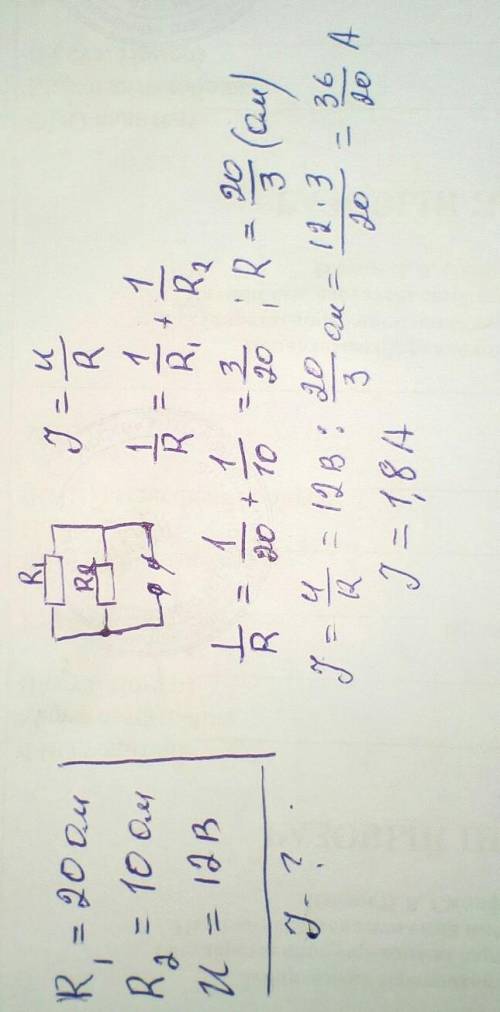 R₁ = 20 Ом
R₂ = 10 Ом
U = 12 В
J - ?
R₁
R₂
J = U/R
1/R = 1/R₁ + 1/R₂
1/R = 1/20 + 1/10 = 3/20, R = 20/3 (Ом)
J = U/R = 12 В : 20/3 Ом = 12 · 3/20 = 36/20 А
J = 1,8 А